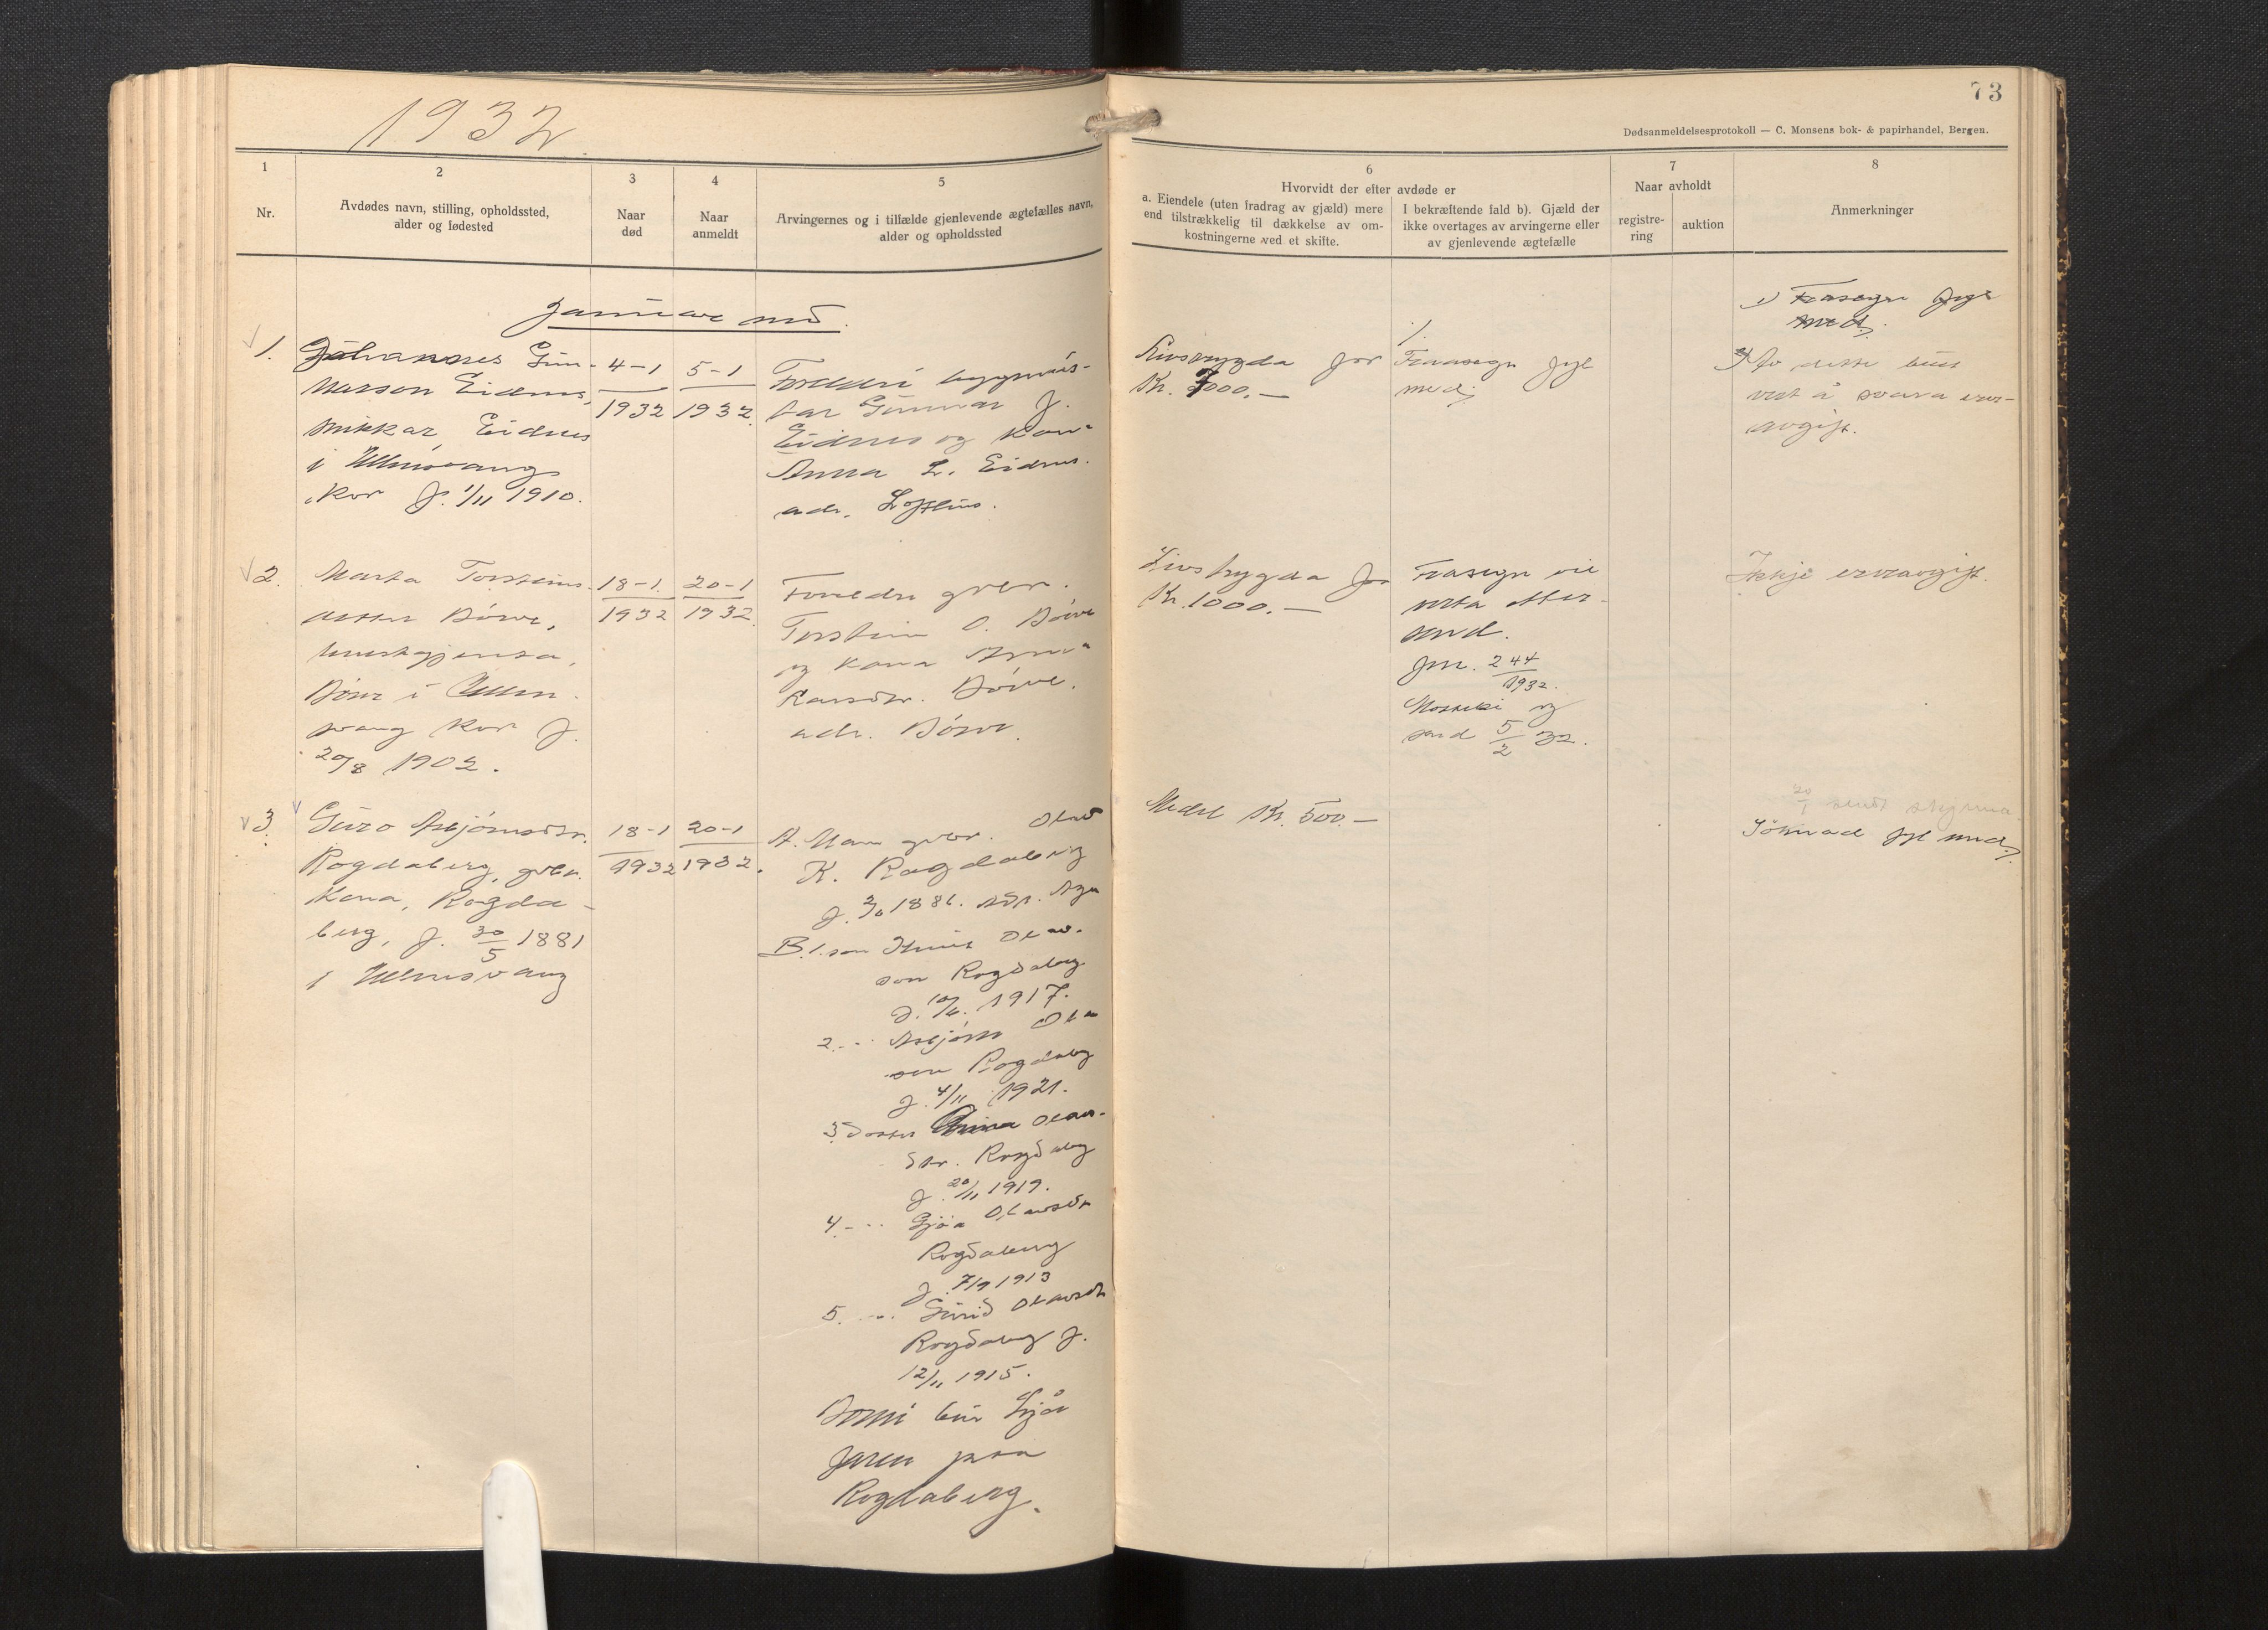 1932
73
Dødsanmeldelsesprotokoll — C. Monsens bok- & papirhandel, Bergen.
1
Nr.
2
Avdødes navn, stilling, opholdssted,
alder og fødested
3
Naar
død
4
Naar
anmeldt
5
Arvingernes og i tilfælde gjenlevende ægtefælles navn,
alder og opholdssted
6
Hvorvidt der efter avdøde er
a. Eiendele (uten fradrag av gjæld) mere
end tilstrækkelig til dækkelse av om-
kostningerne ved et skifte.
I bekræftende fald b). Gjæld der
ikke overtages av arvingerne eller
av gjenlevende ægtefælle
7
Naar avholdt
registre-
ring
auktion
8
Anmerkninger
Januar md.
1.
Johannes Gun-
narson Eidnes,
snikkar, Eidnes
i Ullensvang
kor f. 1/11 1910.
4-1
1932
5-1
1932.
Foreldri byggmeis-
tar Gunnar J.
Eidnes og kona
Anna L. Eidnes.
adr. Lofthus.
Livstrygda for
Kr. 7000.—
1.
Fraasegn fyl
med.
1) Frasegn fyl
med.
Av dette bud
vert å svara erv-
avgift.
2.
Marta Torsteins-
dotter Børve,
Børve i Ullen-
svang kor f.
20/8 1902.
18-1
1932
20-1
1932.
Foreldre gbr.
Torstein O. Børve
og kona
Larsdtr. Børve.
adr. Børve.
Livstrygda for
Kr. 1000.—
Frasegn vil
verta etter-
send.
Jnr. 244
1932.
Motteki og
send 5/2 32.
Ikkje ervavgift.
3.
Guro Asbjørnsdtr.
Rogdaberg, gbr.
kona, Rogda-
berg, f. 30/5 1881
i Ullensvang
18-1
1932
20-1
1932.
A. Mann gbr. Olav
K. Rogdaberg
B. 1. son Olav-
son Rogdaberg
f. 10/6. 1917.
2. -- Asbjørn Olav
son Rogdaberg
f. 4/11 1921.
3. Dotter Anna Olavs-
dtr. Rogdaberg
f. 20/11 1919.
4. -- Gjøa Olavsdtr
Rogdaberg
f. 7/9 1913
5. -- Gurid Olavsdtr
Rogdaberg f.
12/11 1915.
Borni bur hjå
faren paa
Rogdaberg.
Medel Kr. 500.—
20/1 sendt skjema.
Søknad fyl med.